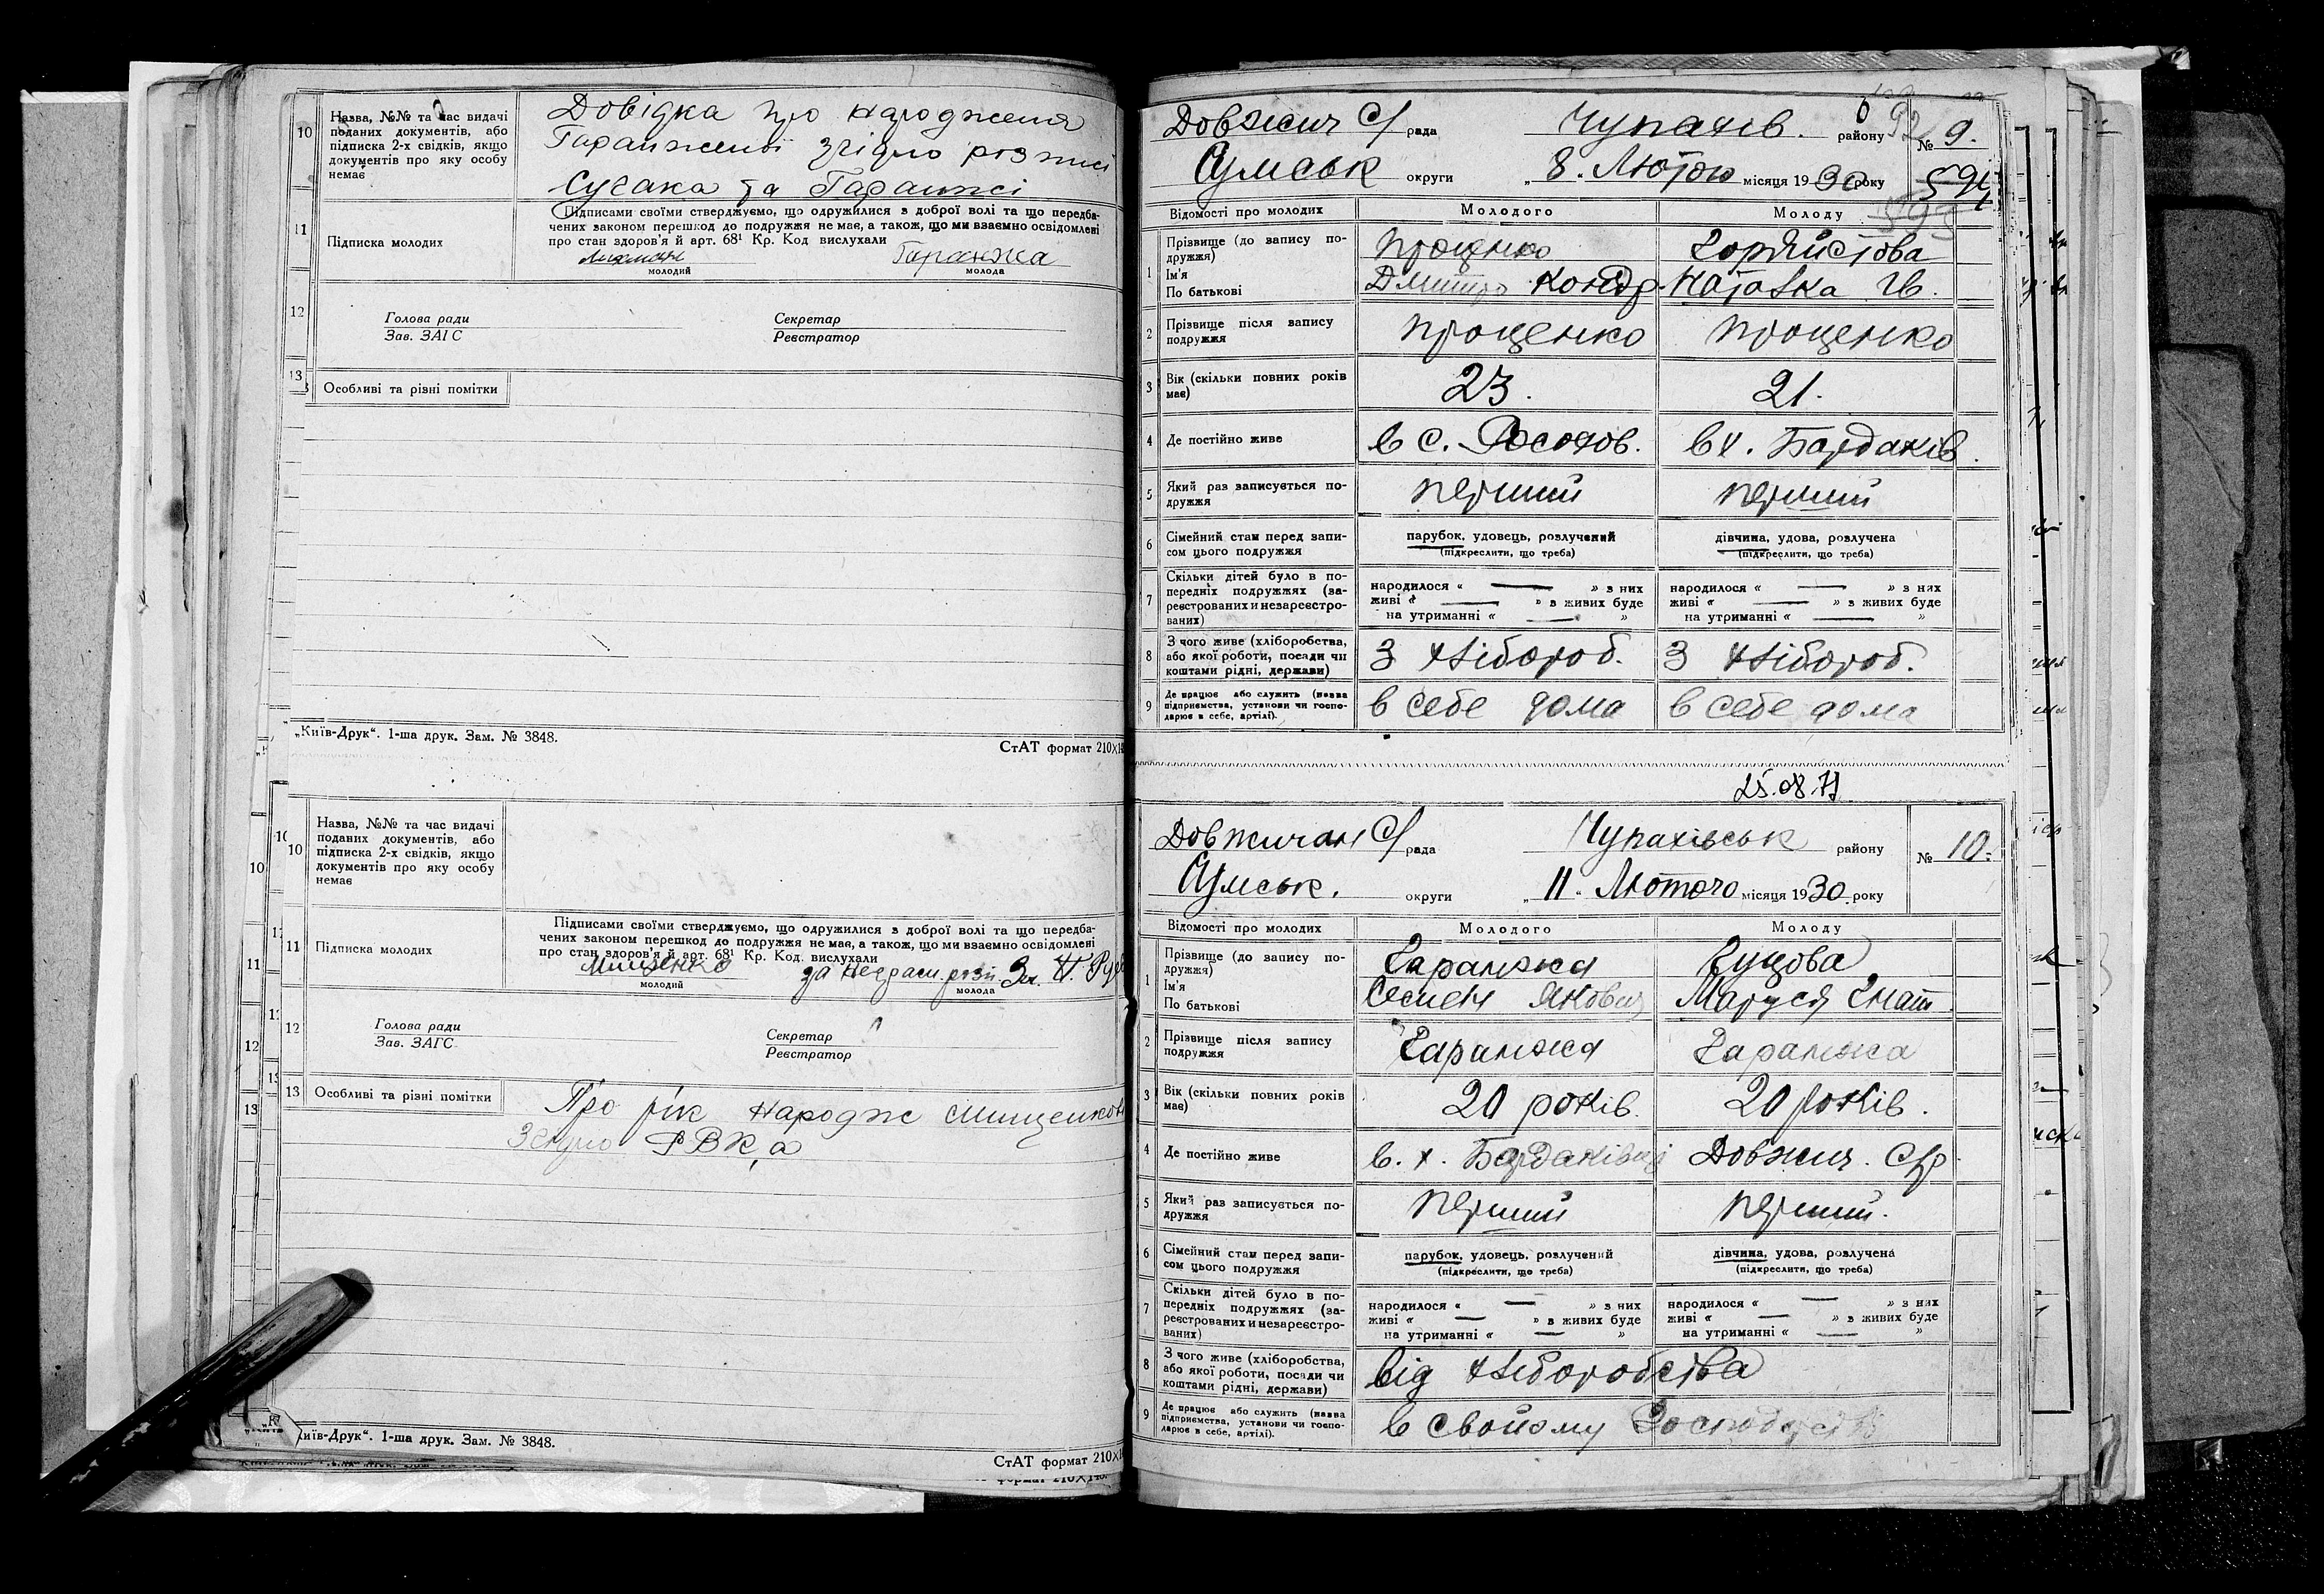 10
Назва, №№ та час видачі
поданих документів, або
підписка 2-х свідків, якщо
документів про яку особу
немає
Довідка про народження
Гаранженві згідно розписі
Сугака та Гаранжі
11
Підписка молодих
Підписами своїми стверджуємо, що одружилися з доброї волі та що передба-
чених законом перешкод до подружжя не має, а також, що ми взаємно освідомлені
про стан здоров'я й арт. 68¹ Кр. Код вислухали
Гаранжа
молодий молода
12
Голова ради Секретар
Зав. ЗАГС Реєстратор
13
Особливі та різні помітки
„Київ-Друк“. 1-ша друк. Зам. № 3848.
СтАТ формат 210×14
10
Назва, №№ та час видачі
поданих документів, або
підписка 2-х свідків, якщо
документів про яку особу
немає
11
Підписка молодих
Підписами своїми стверджуємо, що одружилися з доброї волі та що передба-
чених законом перешкод до подружжя не має, а також, що ми взаємно освідомлені
про стан здоров'я й арт. 68¹ Кр. Код. вислухали
Мищенко за
молодий молода
12
Голова ради Секретар
Зав. ЗАГС Реєстратор
13
Особливі та різні помітки
Про рік народж
РВК,а
иїв-Друк“. 1-ша друк. Зам. № 3848.
СтАТ формат 210×1
Довжич С/рада Чупахів. району № 9.
Сумськ округи „ 8. Лютого місяця 1930 року
Відомості про молодих Молодого Молоду
1
Прізвище (до запису по-
дружжя)
Ім'я
По батькові
Проценко
Дмитро Кондр.
Наталка Ів.
2
Прізвище після запису
подружжя
Проценко Проценко
3
Вік (скільки повних років
має)
23. 21.
4
Де постійно живе
в с. в х. Бардаків.
5
Який раз записується по-
дружжя
перший перший
6
Сімейний стан перед запи-
сом цього подружжя
парубок, удовець, розлучений
(підкреслити, що треба)
дівчина, удова, розлучена
(підкреслити, що треба)
7
Скільки дітей було в по-
передніх подружжях (за-
реєстрованих и незареєстро-
ваних)
народилося « — » з них
живі « — » з живих буде
на утриманні « — »
народилося « — » з них
живі « — » з живих буде
на утриманні « — »
8
З чого живе (хліборобства,
або якої роботи, посади чи
коштами рідні, держави)
З хлібороб. З хлібороб.
9
Де працює або служить (назва
підприємства, установи чи госпо-
дарює в себе, артілі).
в себе дома в себе дома
25.08.71
Довжичан С/рада Чупахівськ району № 10.
Сумськ. округи „ 11. Лютого місяця 1930 року
Відомості про молодих Молодого Молоду
1
Прізвище (до запису по-
дружжя)
Ім'я
По батькові
Гаранжа Гуцова
Семен Якович Маруся Гнат
2
Прізвище після запису
подружжя
Гаранжа Гаранжа
3
Вік (скільки повних років
має)
20 років. 20 років.
4
Де постійно живе
в. х. Бардаківці Довжич. С/р.
5
Який раз записується по-
дружжя
перший перший.
6
Сімейний стан перед запи-
сом цього подружжя
парубок, удовець, розлучений
(підкреслити, що треба)
дівчина, удова, розлучена
(підкреслити, що треба)
7
Скільки дітей було в по-
передніх подружжях (за-
реєстрованих и незареєстро-
ваних)
народилося « — » з них
живі « — » з живих буде
на утриманні « — »
народилося « — » з них
живі « — » з живих буде
на утриманні « — »
8
З чого живе (хліборобства,
або якої роботи, посади чи
коштами рідні, держави)
від хліборобства
9
Де працює або служить (назва
підприємства, установи чи госпо-
дарює в себе, артілі).
в свойому